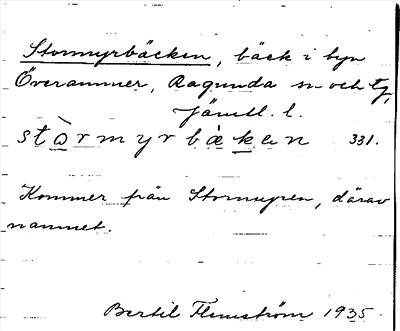 Stormyrbäcken, bäck i byn
Överammer, Ragunda sn och tg,
Jämtl. l.
stòrmyrbàken 331.
Kommer från Stormyren, därav
namnet.
Bertil Flemström 1935.